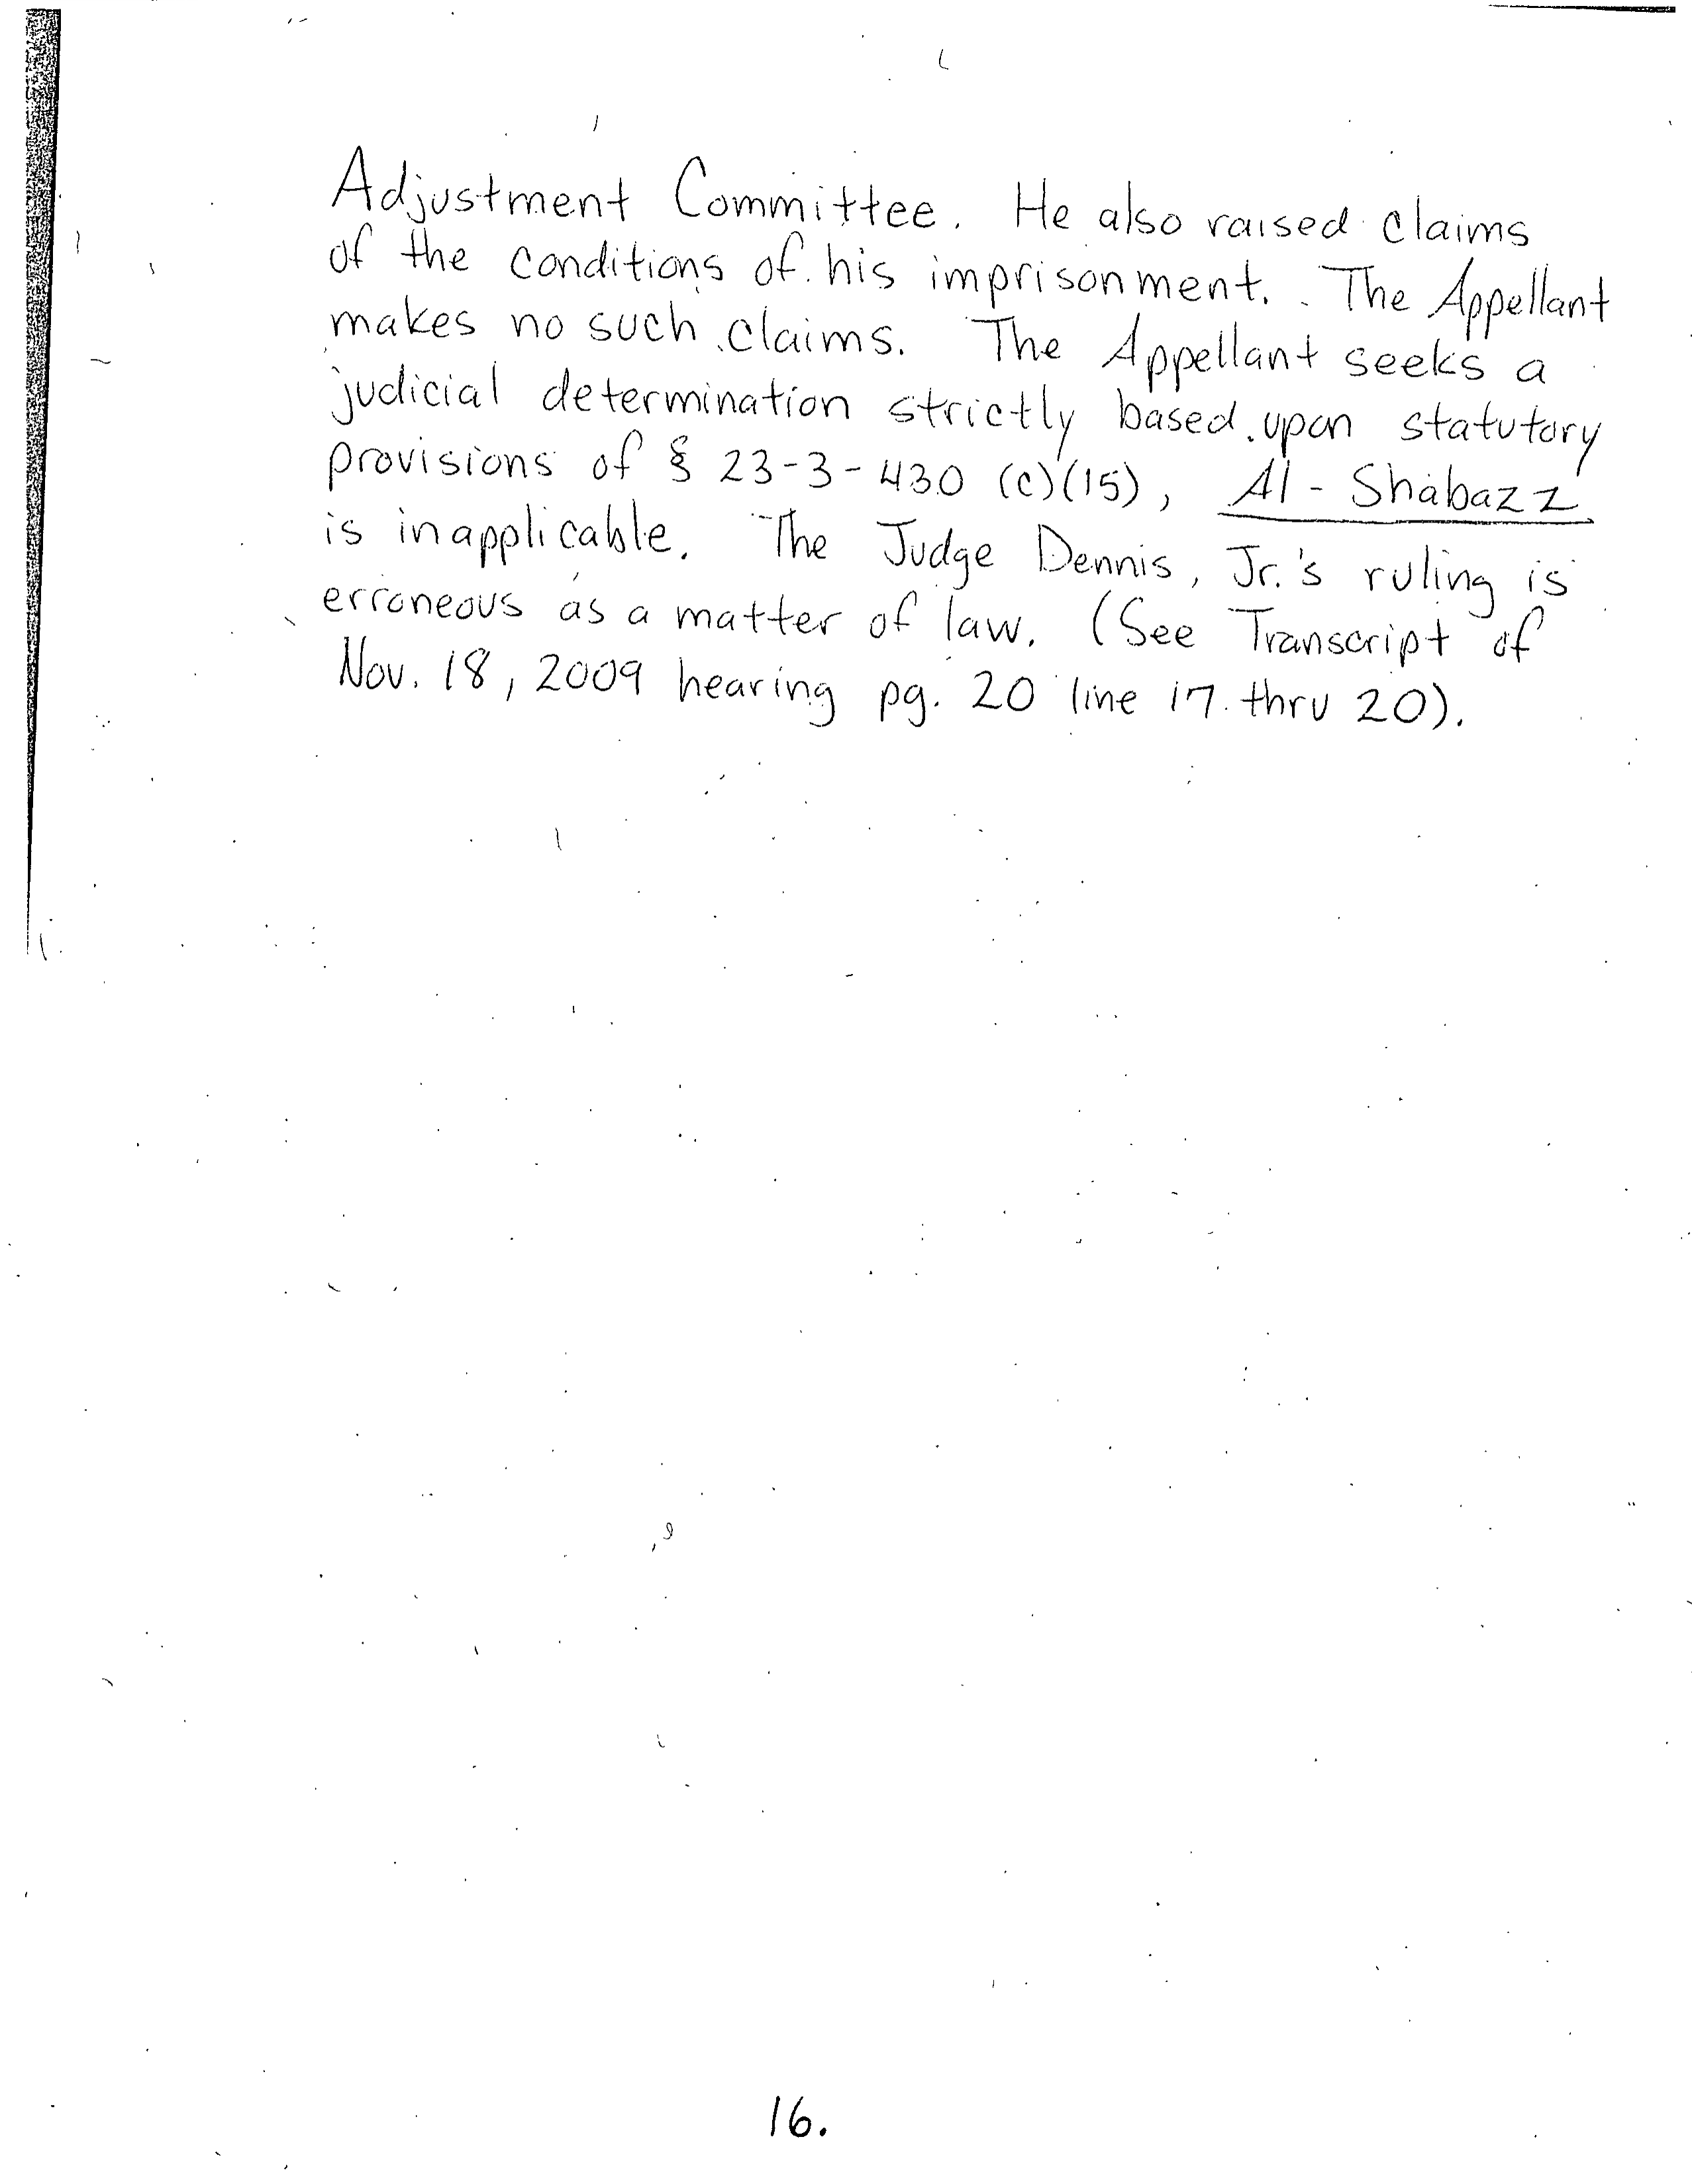 Adjustment Committee. He also raised claims
of the conditions of his imprisonment. The Appellant
makes no such claims. The Appellant seeks a
judicial determination strictly based upon statutory
provisions of § 23-3-430 (c)(15), Al-Shabazz
is inapplicable. The Judge Dennis, Jr.'s ruling is
erroneous as a matter of law. (See Transcript of
Nov. 18, 2009 hearing pg. 20 line 17 thru 20).
16.